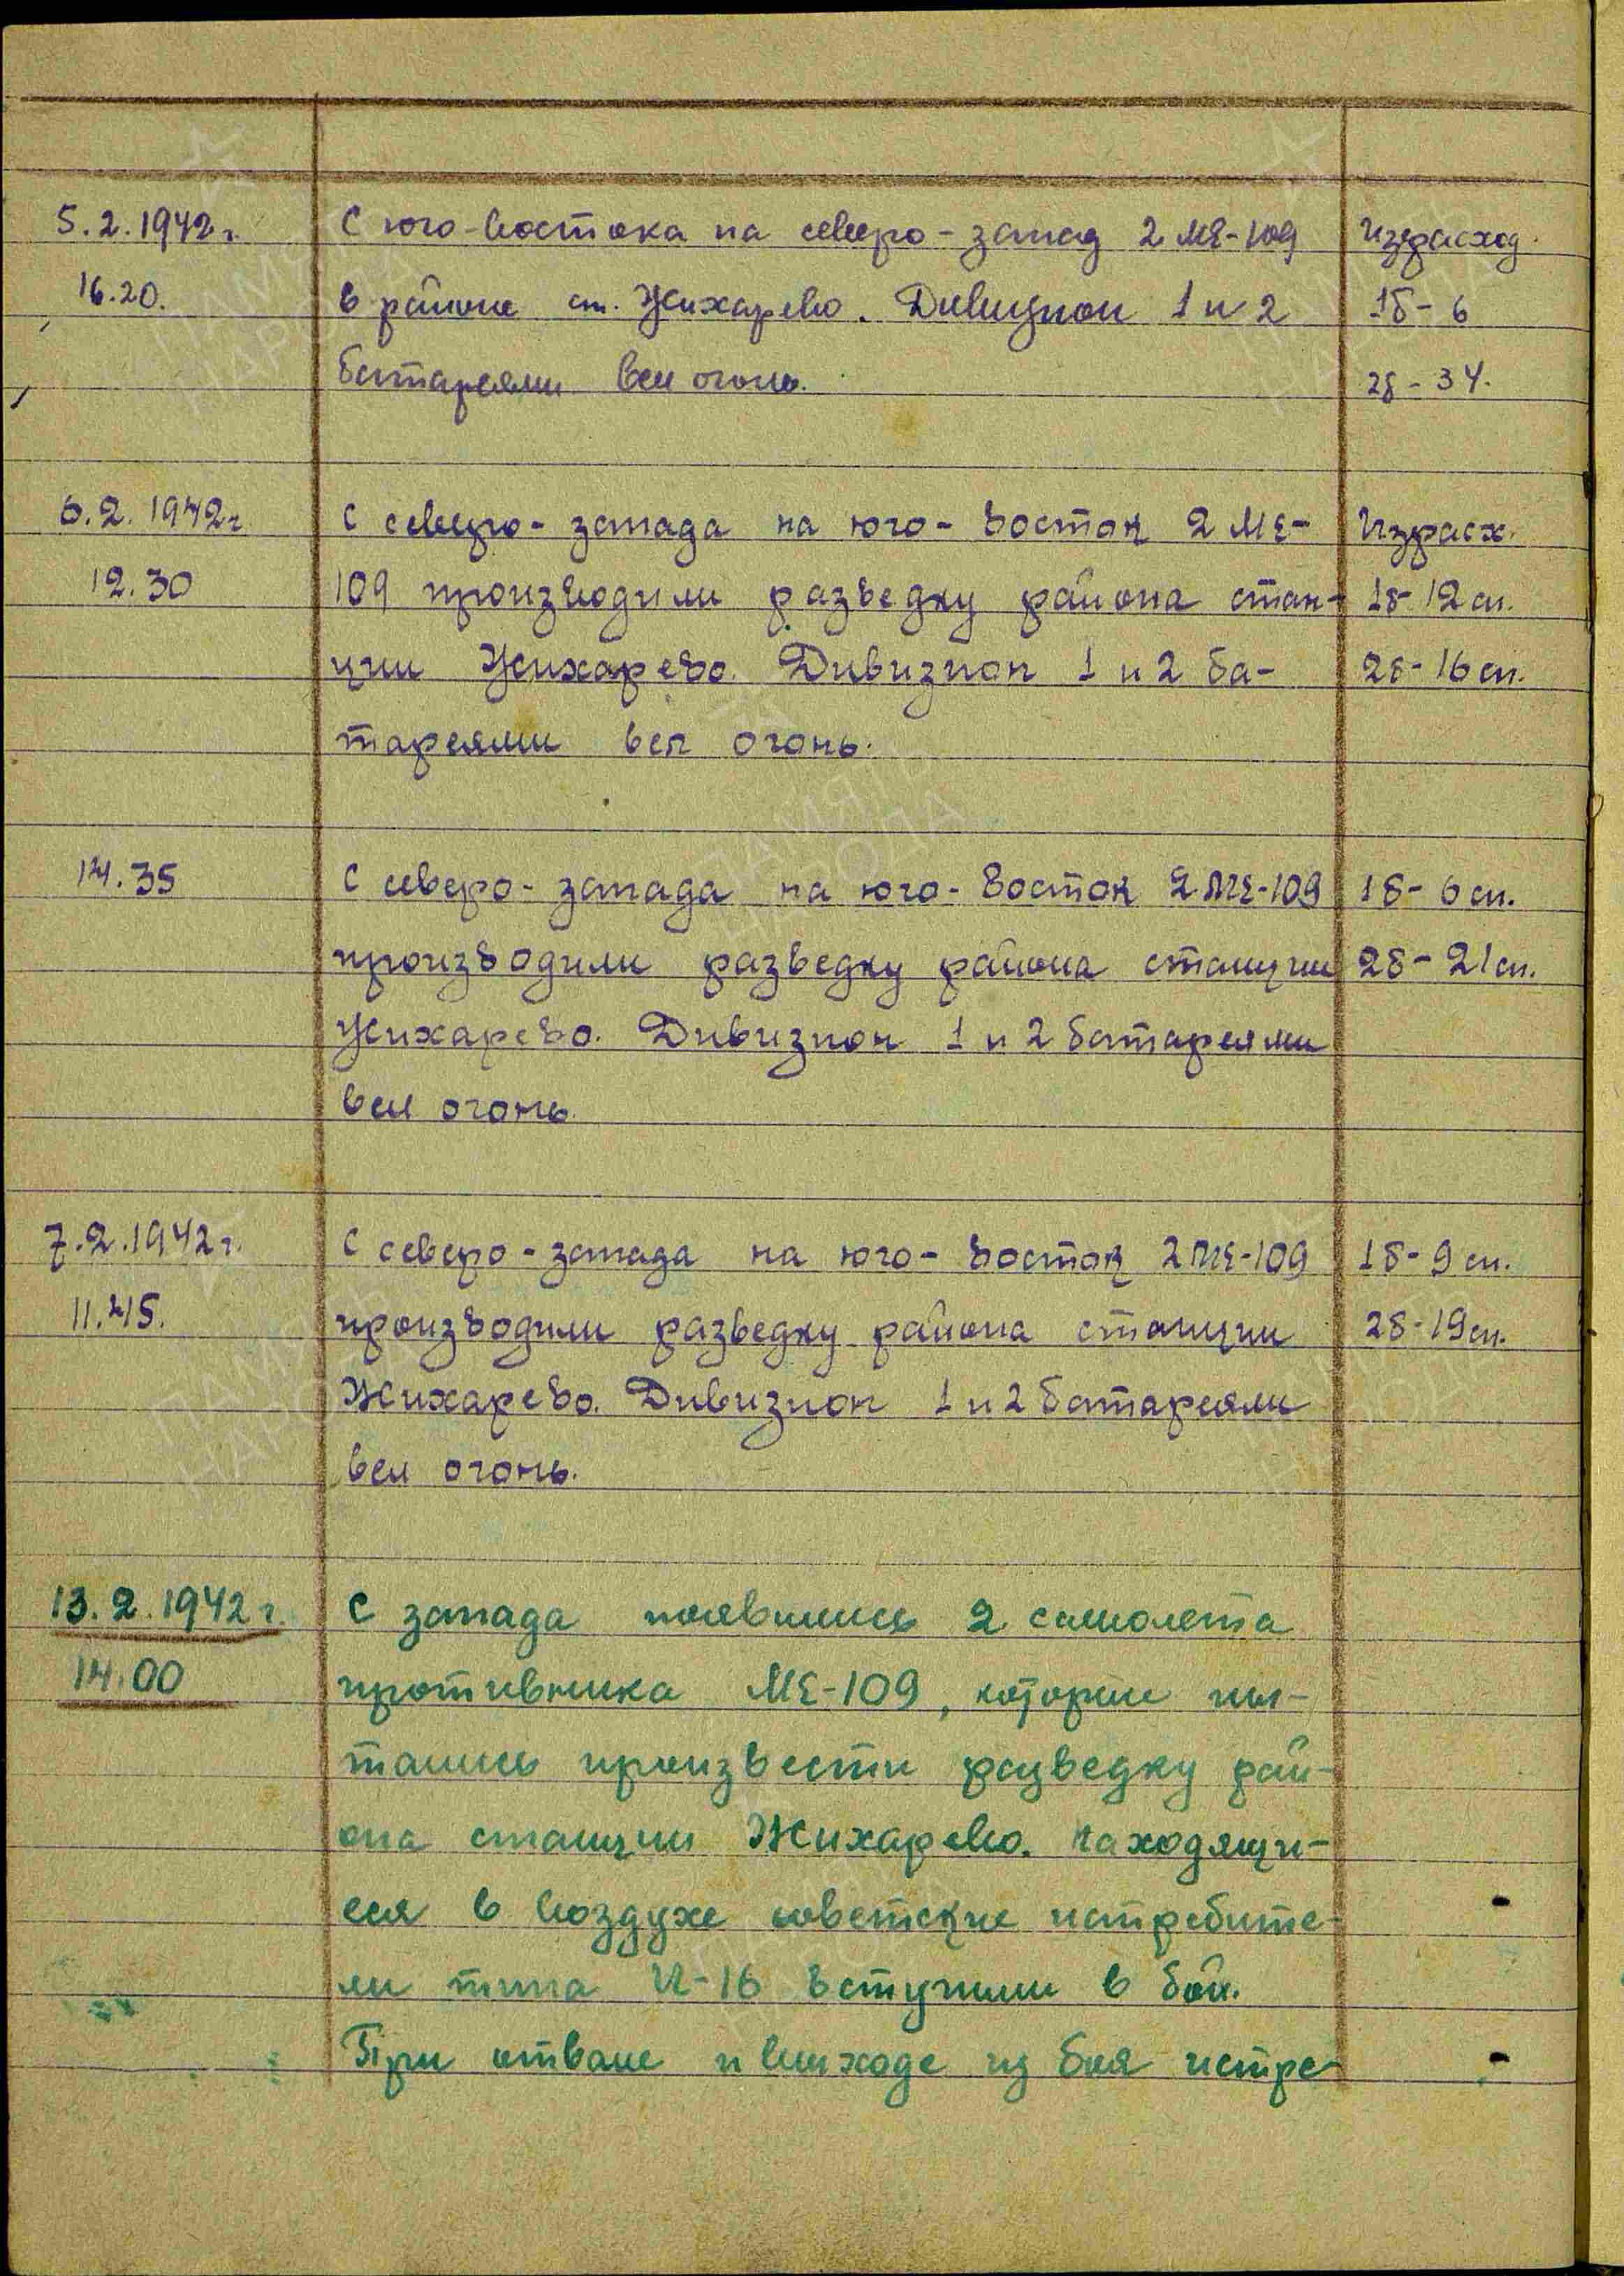 5.2.1942г. С юго-востока на северо-запад 2 МЕ-109 Израсход.
16.20. в районе ст. Жихарево. Дивизион 1 и 2 1б-6
батареями вел огонь. 2б-34.
6.2.1942г. С северо-запада на юго-восток 2 МЕ- Израсх.
12.30 109 производили разведку района стан- 1б-12 сн.
ции Жихарево. Дивизион 1 и 2 ба- 2б-16 сн.
тареями вел огонь.
14.35 С северо-запада на юго-восток 2 МЕ-109 1б-6 сн.
производили разведку района станции 2б-21 сн.
Жихарево. Дивизион 1 и 2 батареями
вел огонь.
7.2.1942г. С северо-запада на юго-восток 2 МЕ-109 1б-9 сн.
11.45. производили разведку района станции 2б-19 сн.
Жихарево. Дивизион 1 и 2 батареями
вел огонь.
13.2.1942г. С запада появились 2 самолета
14.00 противника МЕ-109, которые пы-
тались произвести разведку рай-
она станции Жихарево. Находящи-
еся в воздухе советские истребите-
ли типа И-16 вступили в бой.
При отвале и выходе из боя истре-